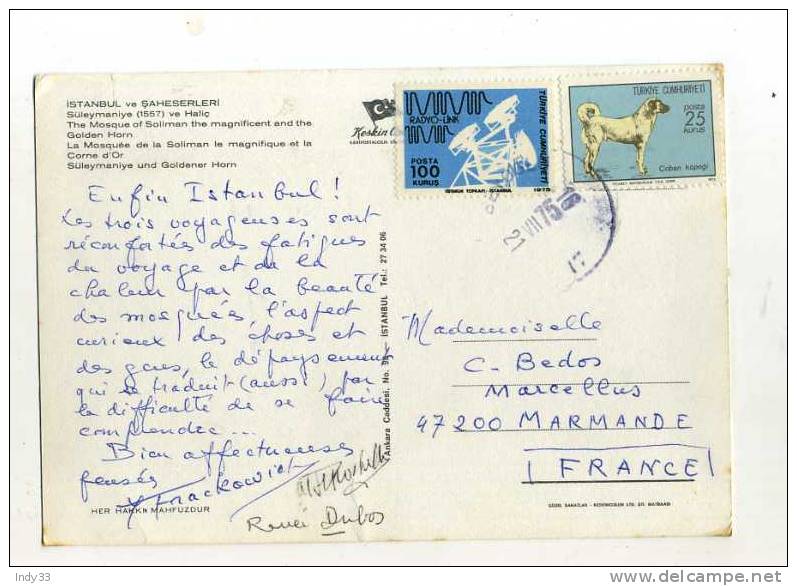 İSTANBUL ve ŞAHESERLERİ
Süleymaniye (1557) ve Haliç
The Mosque of Soliman the magnificent and the
Golden Horn
La Mosquée de la Soliman le magnifique et la
Corne d'Or
Süleymaniye und Goldener Horn
Keskin
RADYO-LİNK
POSTA
100
KURUŞ
TÜRKİYE CUMHURİYETİ
1975
TÜRKİYE CUMHURİYETİ
posta
25
kuruş
Çoban köpeği
21 VII 75
17
Enfin Istanbul !
Les trois voyageuses sont
réconfortées des fatigues
du voyage et de la
chaleur par la beauté
des mosquées, l'aspect
curieux des choses et
des gens, le dépaysement
qui se traduit (aussi) par
la difficulté de se faire
comprendre...
Bien affectueuses
pensées
Renée Dubos
HER HAKKI MAHFUZDUR
Ankara Caddesi, No. 98 - İSTANBUL Tel.: 27 34 06
Mademoiselle
C. Bedos
Marcellus
47200 MARMANDE
FRANCE
Indy33
delcampe.net